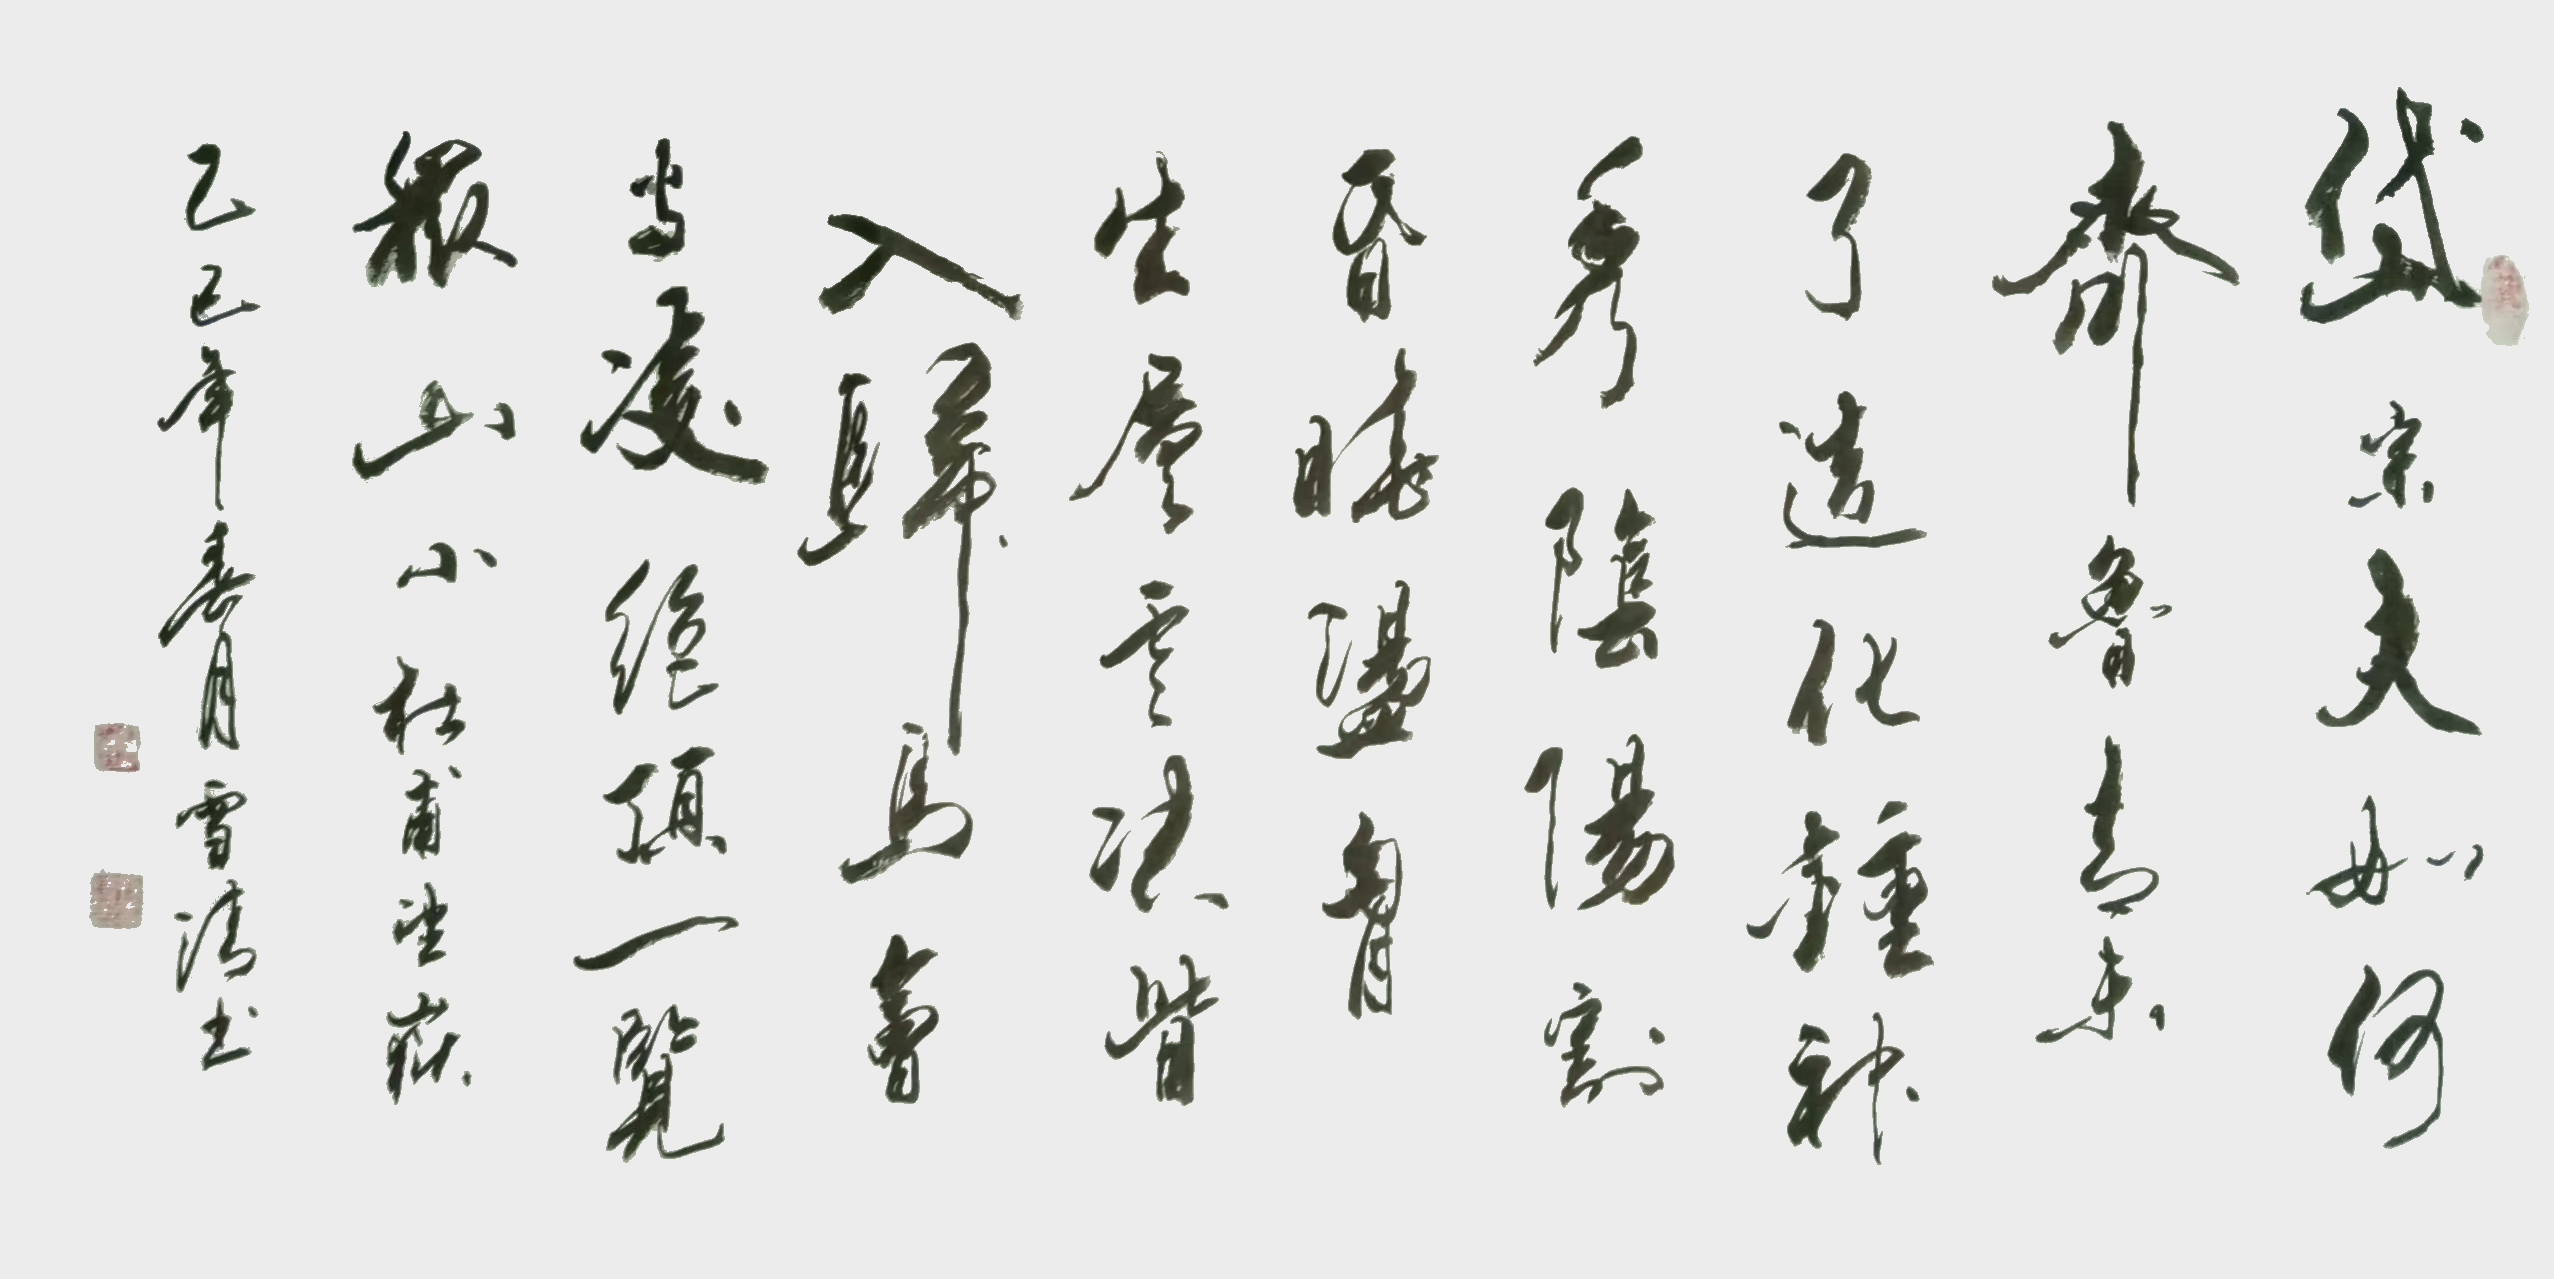 岱宗夫如何
齊魯青未
了造化鍾神
秀陰陽割
昏曉盪胷
生層雲决眥
入歸鳥會
當凌絕頂一覽
眾山小杜甫望嶽
乙巳年春月雪清书